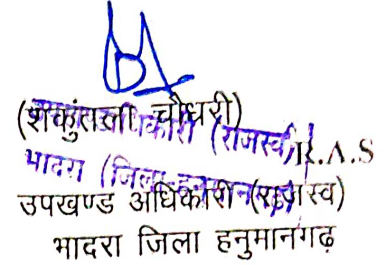 (शकुंतला चौधरी)
R.A.S
उपखण्ड अधिकारी (राजस्व)
भादरा (जिला हनुमानगढ़)
उपखण्ड अधिकारी (राजस्व)
भादरा जिला हनुमानगढ़